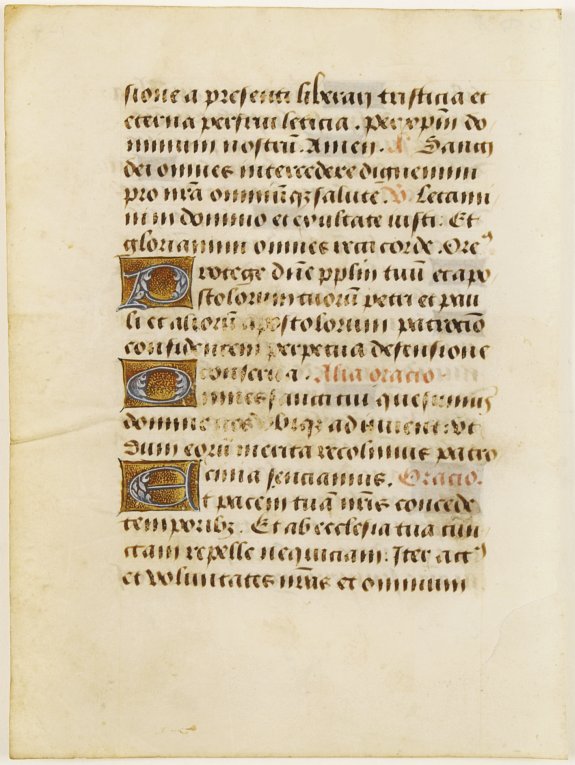 sione a presenti liberari tristicia et
eterna perfrui leticia. Per xp̄m do
minum nostrū. Amen. A. Sancti
dei omnes intercedere dignemini
pro nr̄a omniūqꝫ salute. V. Letami
ni in domino et exultate iusti. Et
gloriamini omnes recti corde. Ore
Protege dn̄e pplm̄ tuū et apo
stolorum tuorū petri et pau
li et aliorū apostolorum patrociō
confidentem perpetua defensione
conserua. Alia oracio
Omnes sancti tui quesumus
domine nos ubiqꝫ adiuuent vt
dum eorū merita recolimus patro
cinia senciamus. Oracio.
Et pacem tuā nr̄is concede
temporibꝫ. Et ab ecclesia tua cun
ctam repelle nequiciam. Iter act
et voluntates nr̄as et omnium